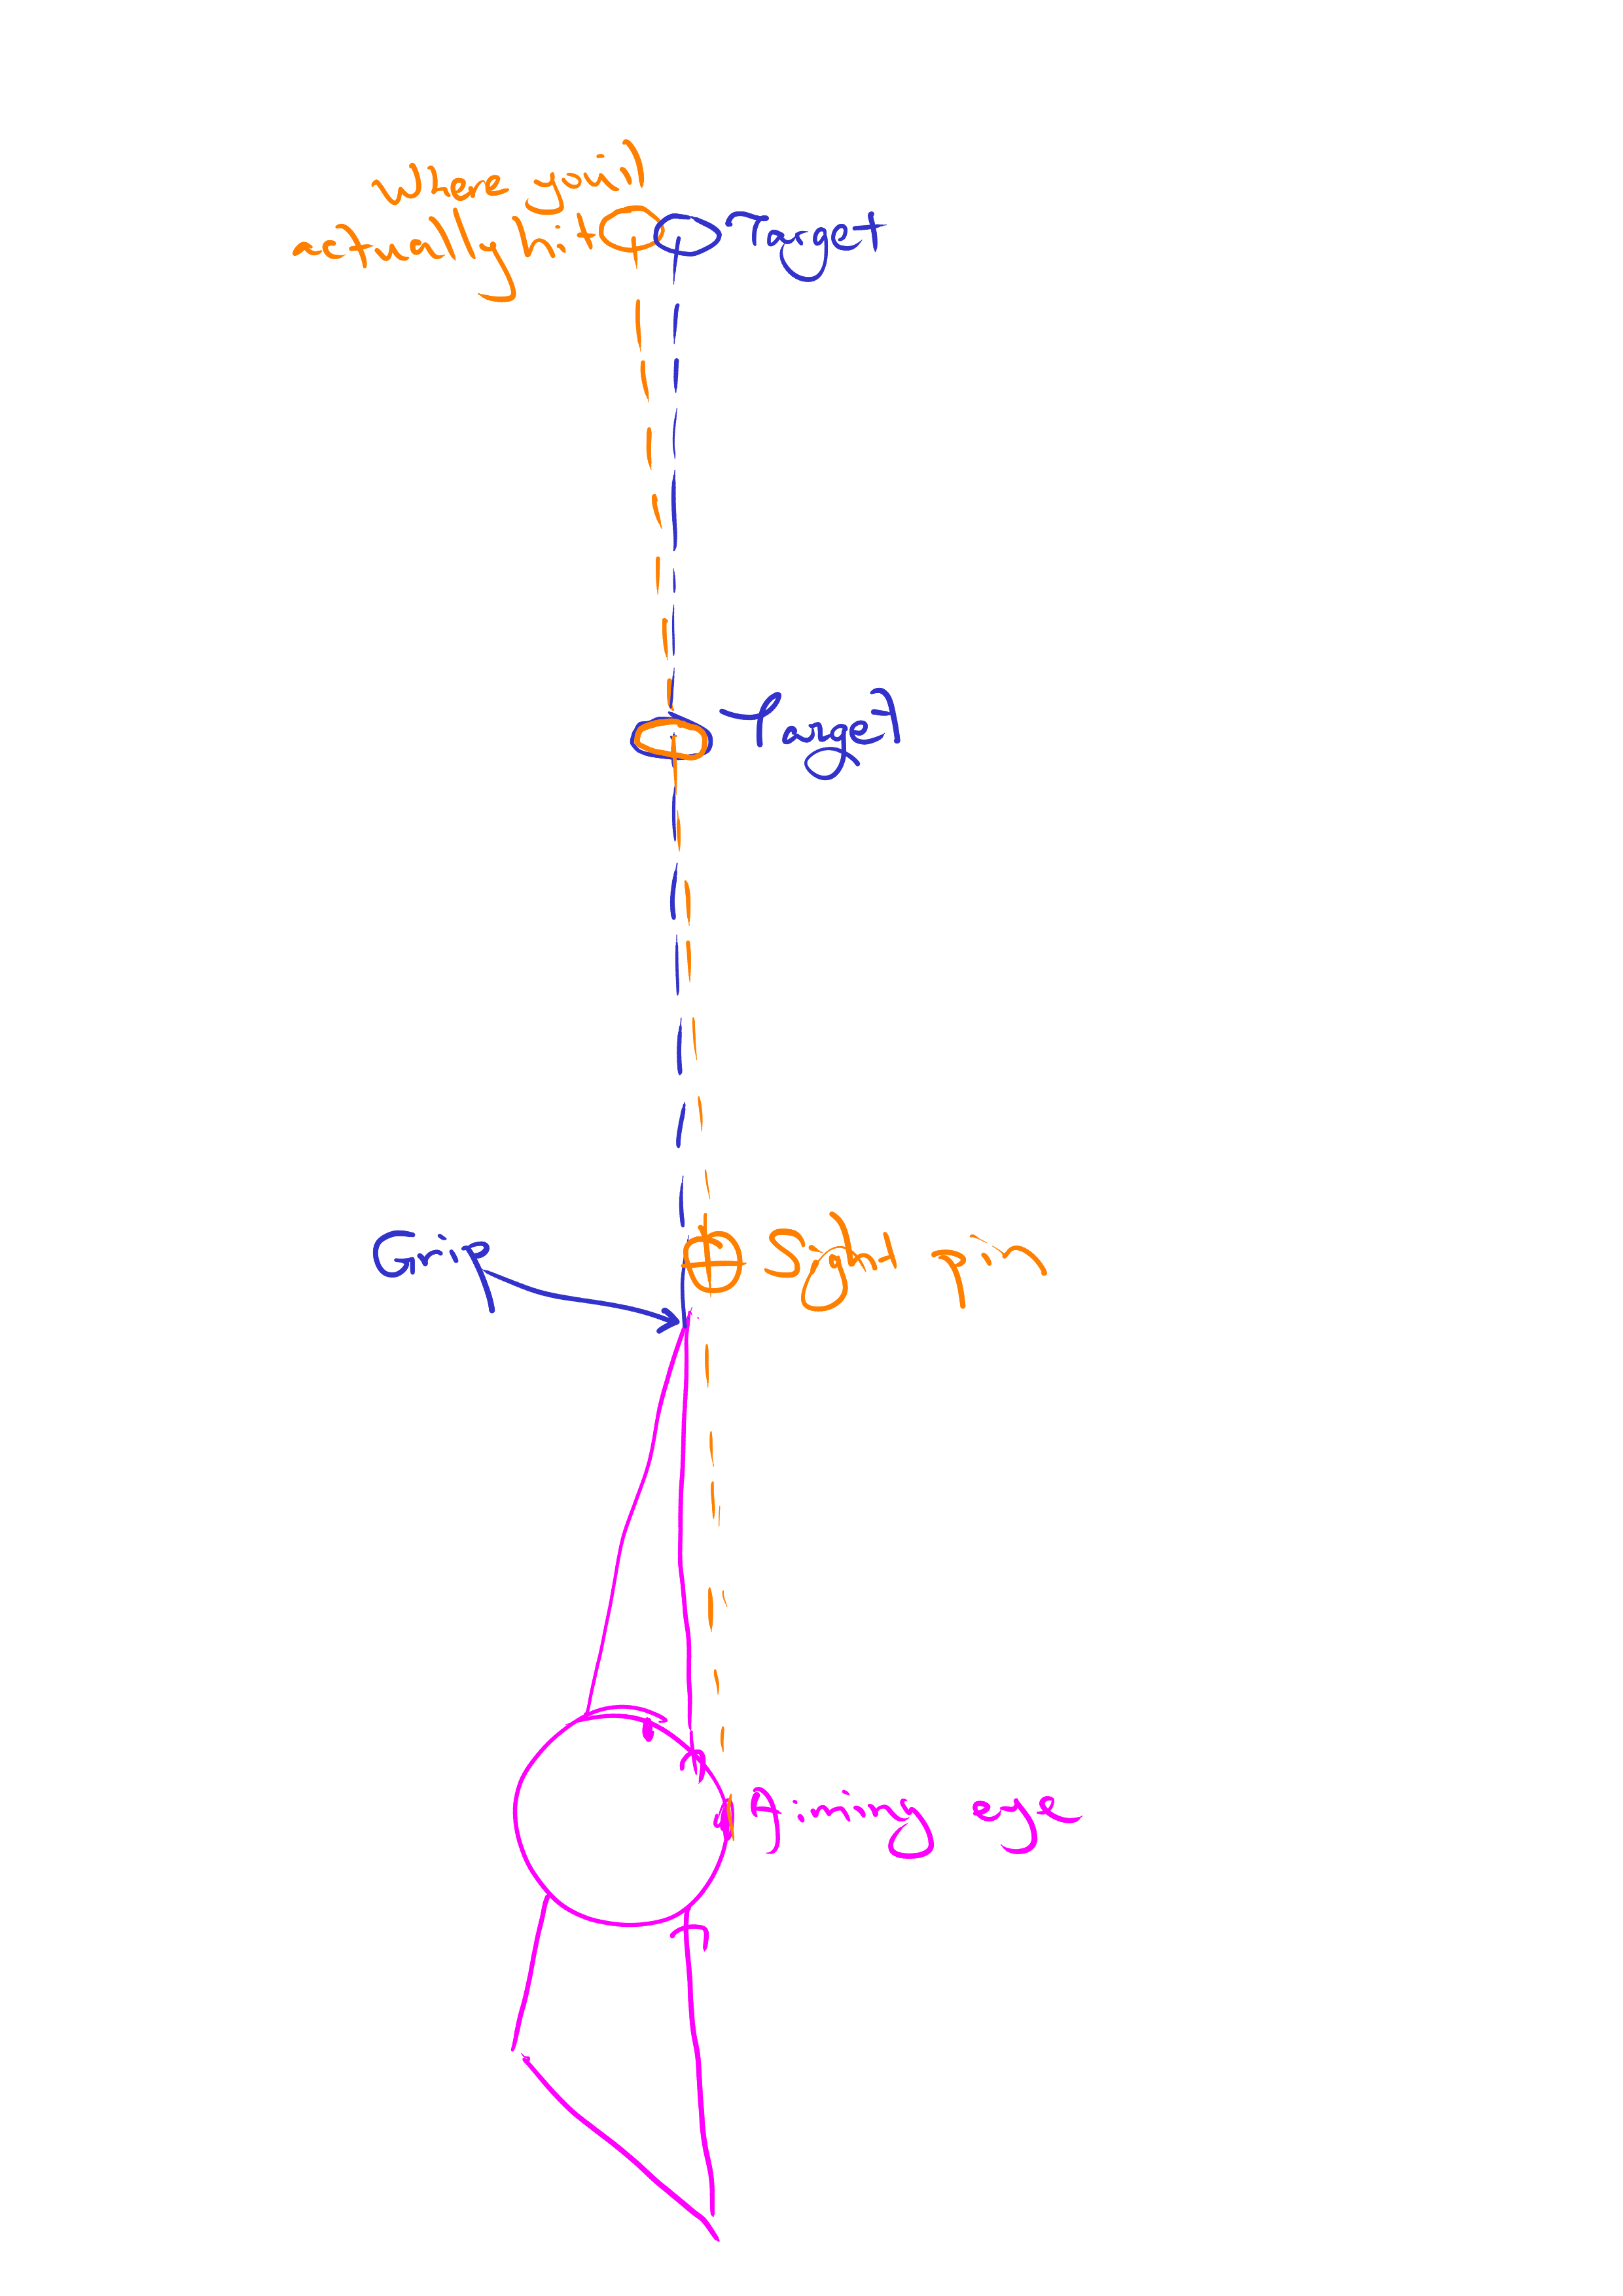 Where you'll
actually hit
Target
Target
Grip
Sight pin
Aiming eye